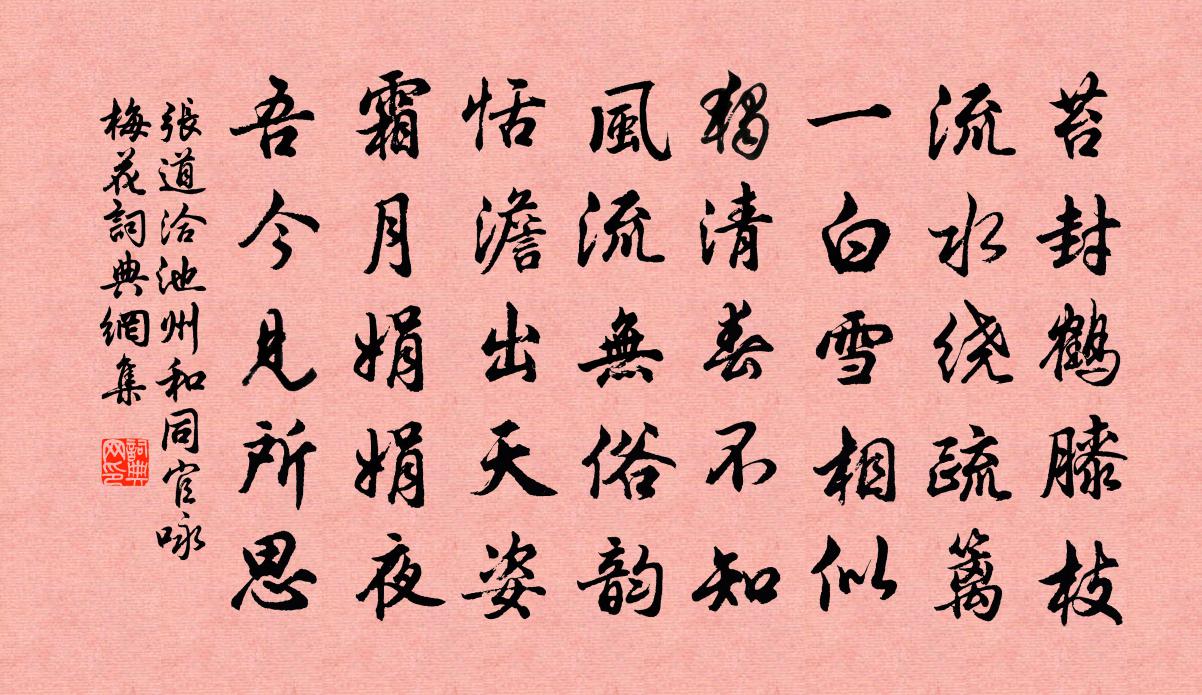 苔封鶴膝枝
流水绕疏篱
一白雪相似
獨清春不知
風流無俗韵
恬澹出天姿
霜月娟娟夜
吾今見所思
張道洽池州和同官咏
梅花詞典網集
詞典
网印